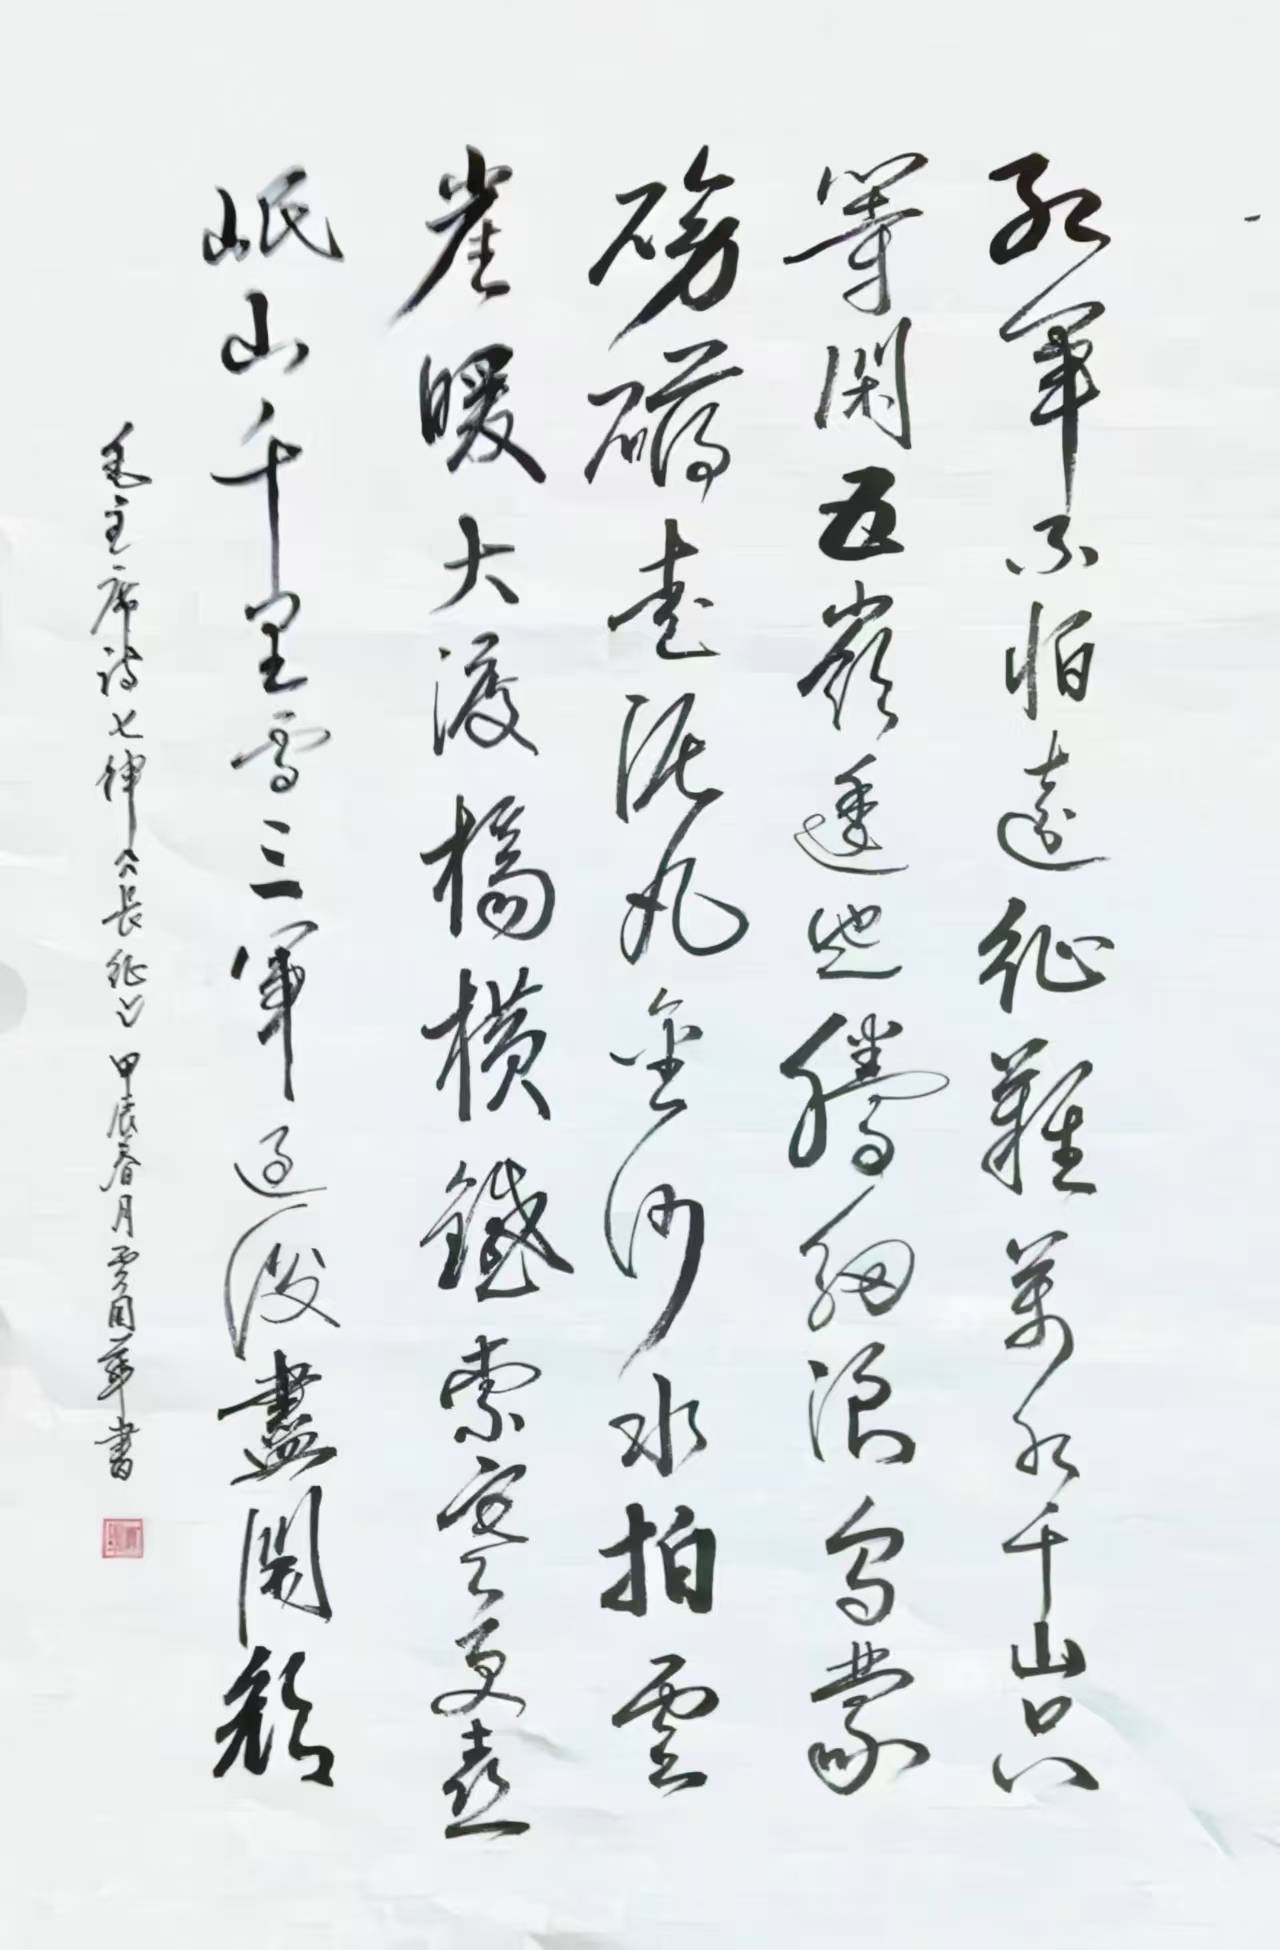 红军不怕遠征難萬水千山只
等閑五嶺逶迤騰細浪烏蒙
磅礴走泥丸金沙水拍雲
崖暖大渡橋横鐵索寒更喜
岷山千里雪三軍过後盡開顔
毛主席诗七律《長征》甲辰春月賈月華書